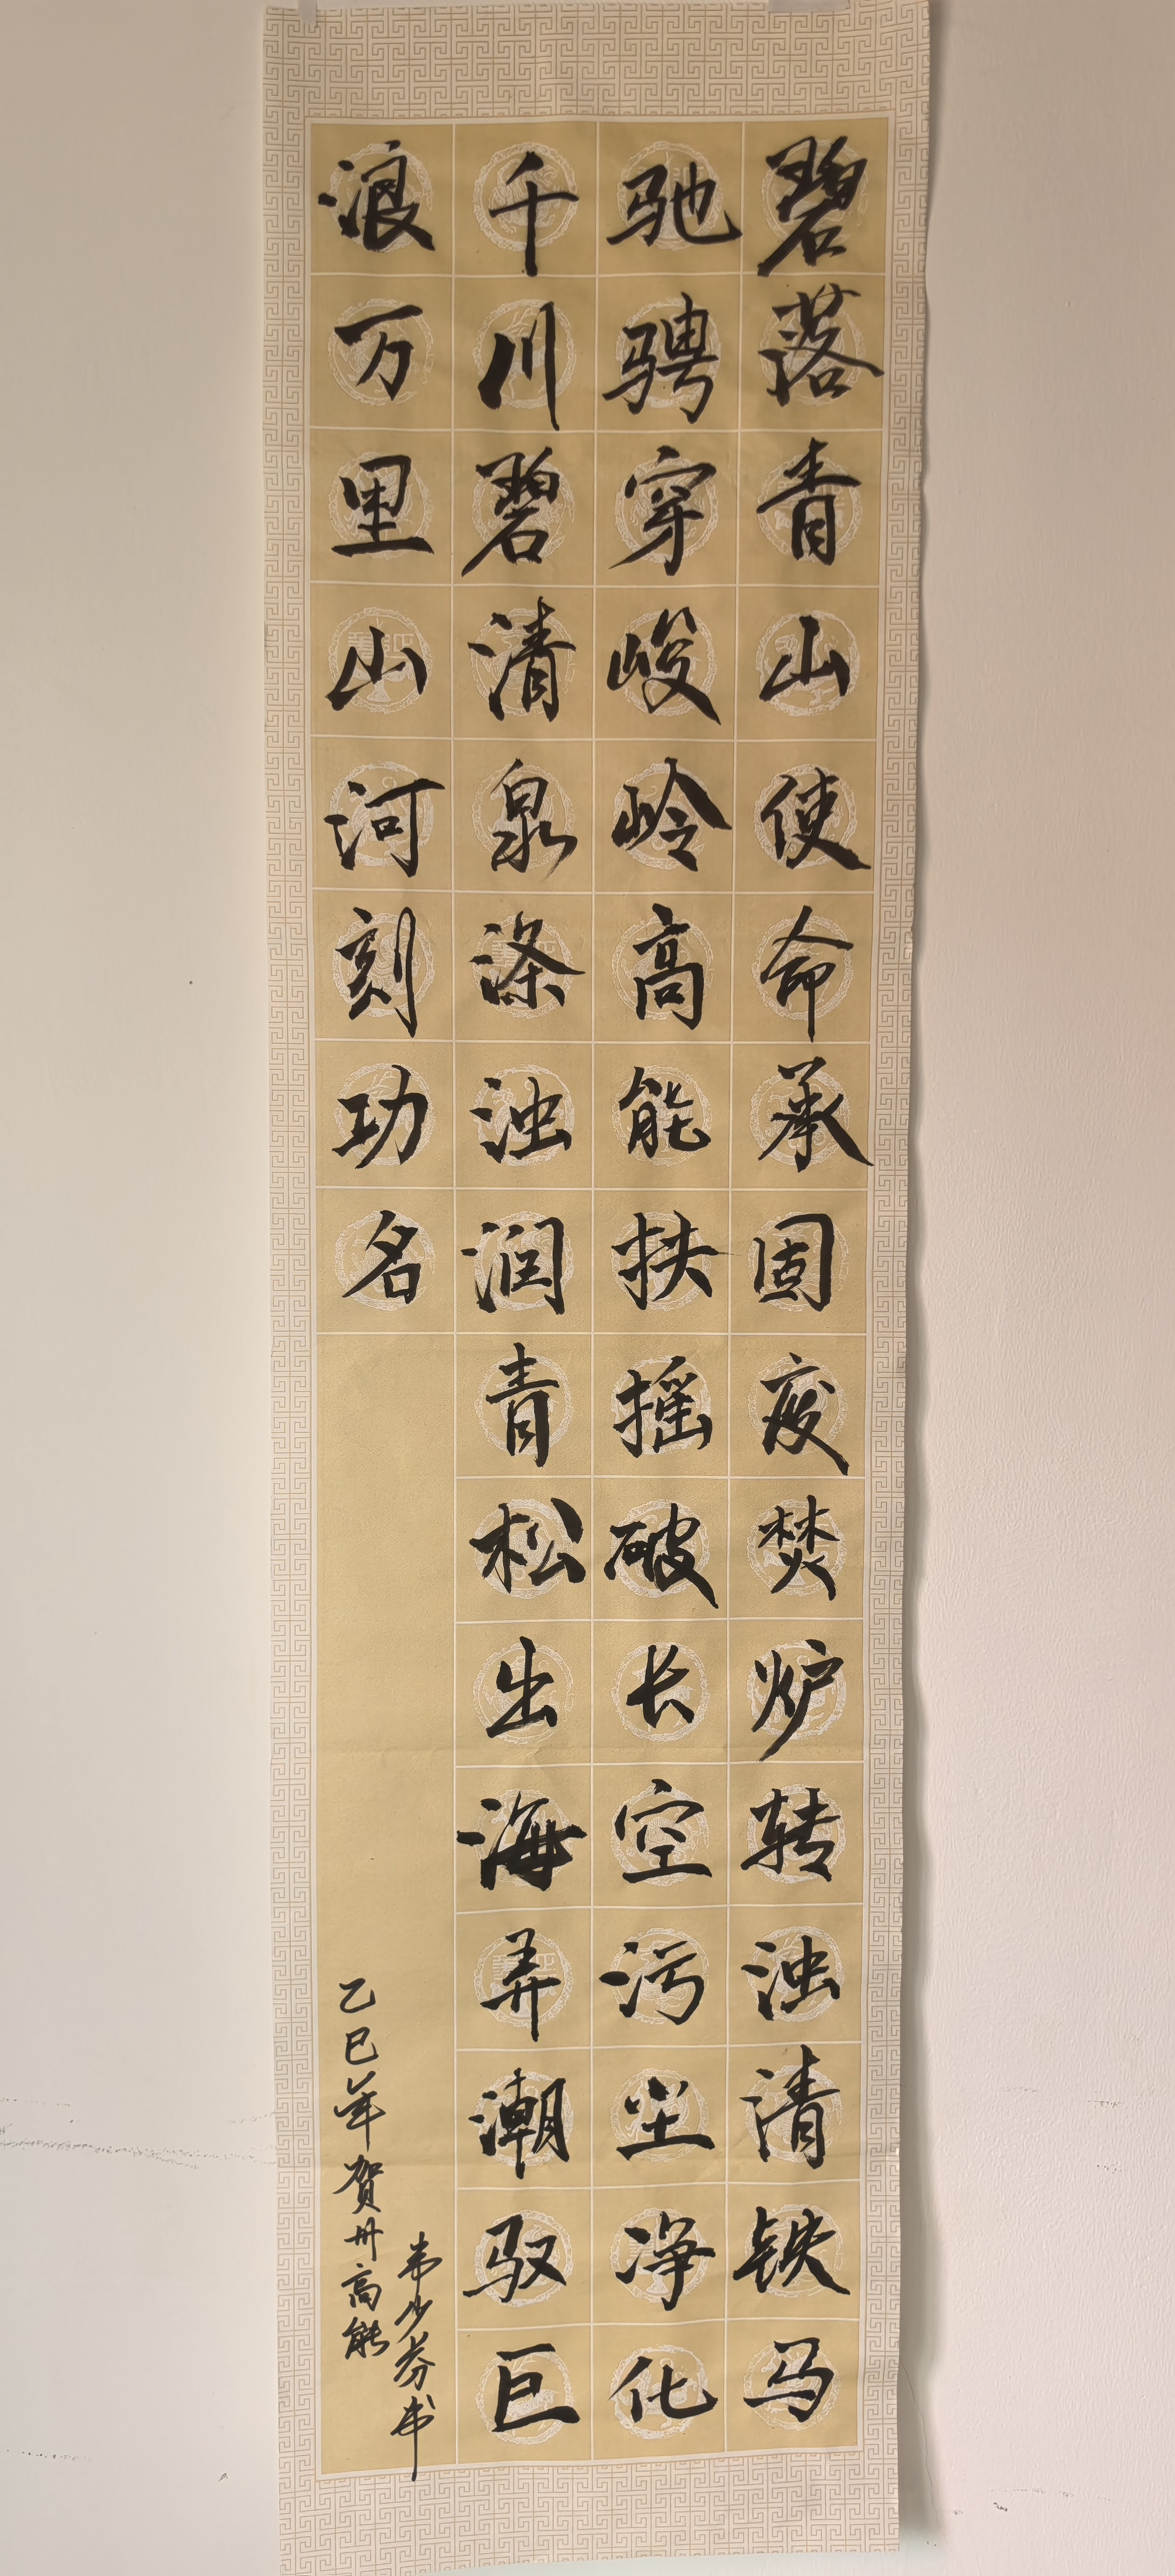 碧落青山使命承固废焚炉转浊清铁马
驰骋穿峻岭高能扶摇破长空污尘净化
千川碧清泉涤浊润青松出海弄潮驭巨
浪万里山河刻功名
韦少芬书
乙巳年贺州高能